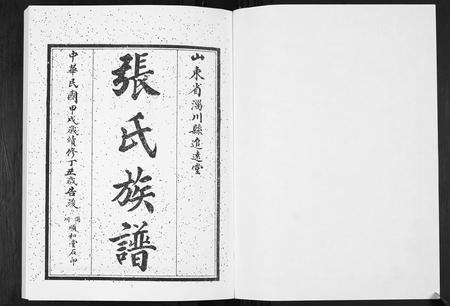 山東省淄川縣追遠堂
張氏族譜
中華民國甲戌歲續修丁丑歲告竣
順和堂石印